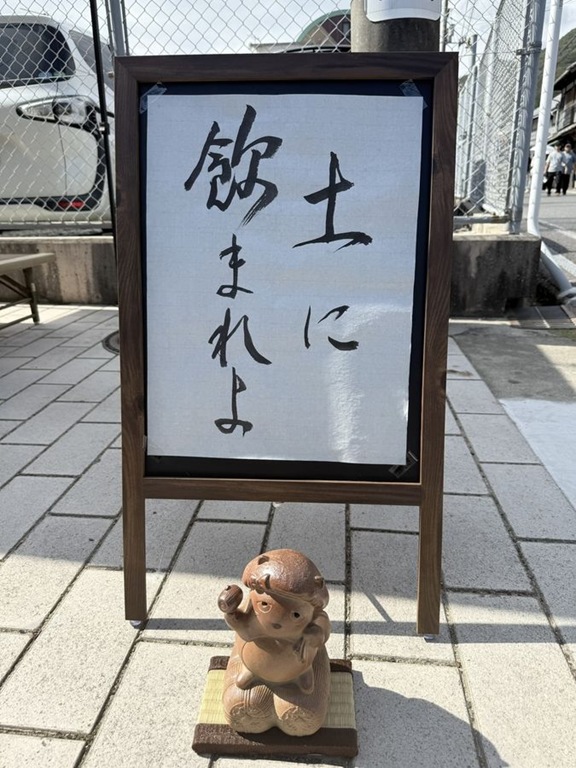 土に
飲まれよ